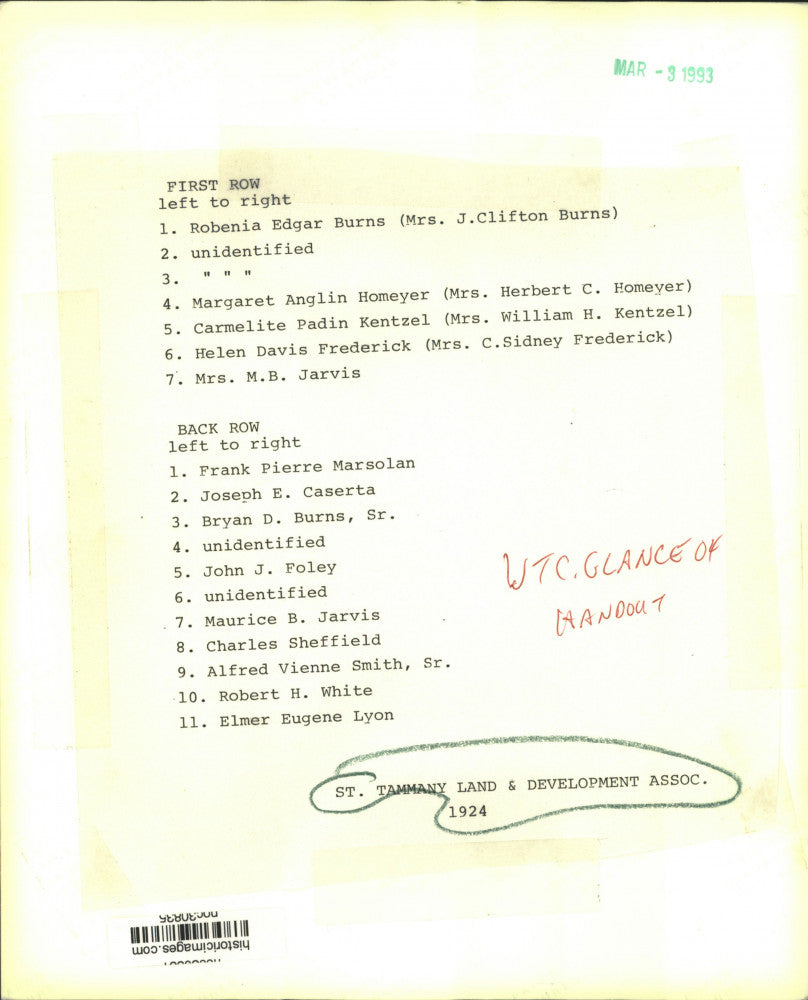 MAR - 3 1993
FIRST ROW
left to right
1. Robenia Edgar Burns (Mrs. J.Clifton Burns)
2. unidentified
3. " " "
4. Margaret Anglin Homeyer (Mrs. Herbert C. Homeyer)
5. Carmelite Padin Kentzel (Mrs. William H. Kentzel)
6. Helen Davis Frederick (Mrs. C.Sidney Frederick)
7. Mrs. M.B. Jarvis
BACK ROW
left to right
1. Frank Pierre Marsolan
2. Joseph E. Caserta
3. Bryan D. Burns, Sr.
4. unidentified
5. John J. Foley
6. unidentified
7. Maurice B. Jarvis
8. Charles Sheffield
9. Alfred Vienne Smith, Sr.
10. Robert H. White
11. Elmer Eugene Lyon
WTC. GLANCE OF
HANDOUT
ST. TAMMANY LAND & DEVELOPMENT ASSOC.
1924
historicimages.com
noc30835